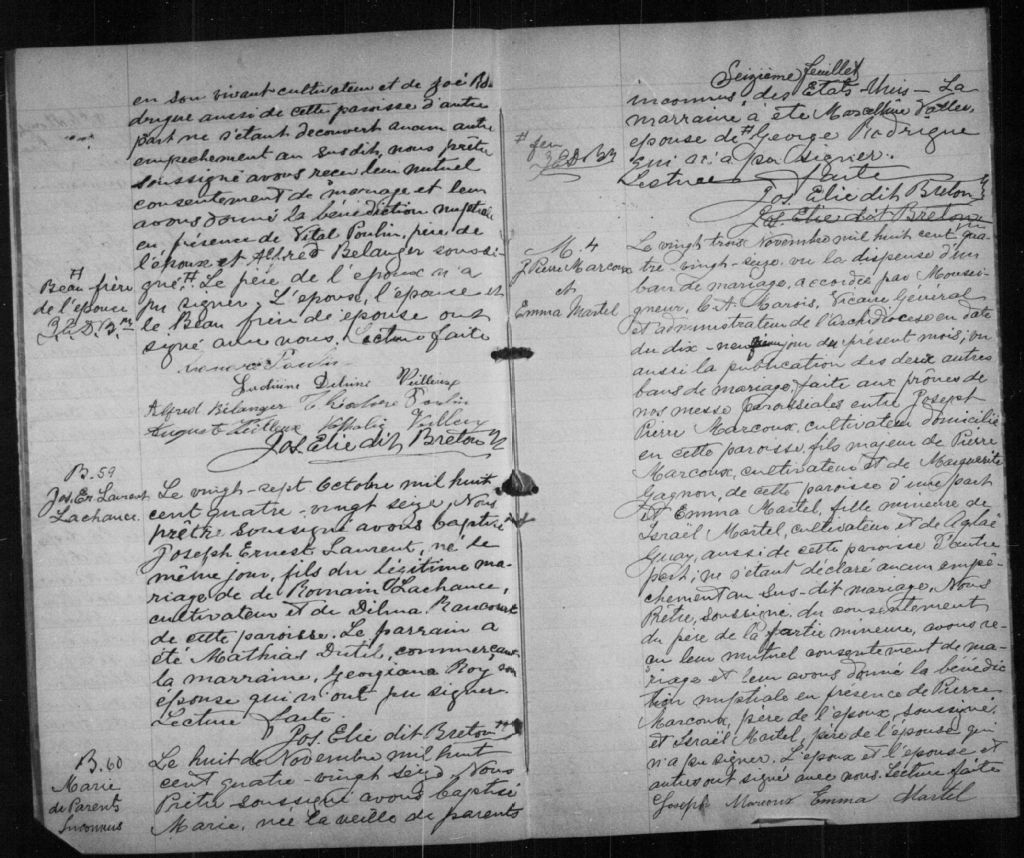 en son vivant cultivateur et de Joé Ro-
drigue aussi de cette paroisse d'autre
part ne s'étant découvert aucun autre
empechement au susdit, nous prêtre
soussigné avons recu leur mutuel
consentement de mariage et leur
avons donné la bénédiction nuptiale
en présence de Vital Poulin, père de
l'époux et Alfred Belanger soussi-
gné.# Le père de l'epoux n'a
pu signer. L'epoux, l'épouse et
le Beau frère de épouse ont
signé avec nous. Lecture faite
#
Beau frère
de l'épouse
J.E.D.B. ptre
Poulin
Delvini Veilleux
Alfred Bélanger Théodore Poulin
Auguste Veilleux Veilleux
Jos. Elie dit Breton Ptre
B. 59
Jos. Er. Laurent
Lachance.
Le vingt-sept Octobre mil huit
cent quatre-vingt seize, Nous
prêtre soussigné avons baptisé
Joseph Ernest Laurent, né le
même jour, fils du légitime ma-
riage de de Romain Lachance,
cultivateur et de Dilina Rancourt
de cette paroisse. Le parrain a
été Mathias Dutil, commerçant
la marraine, Georgiana Roy, son
épouse qui n'ont pu signer
Lecture faite.
Jos. Elie dit Breton Ptre
B. 60
Marie
de Parents
Inconnus
Le huit de Novembre mil huit
cent quatre-vingt seize Nous
Prêtre soussigné avons baptisé
Marie, née la veille de parents
Seizième feuillet
inconnus, des Etats-Unis - La
marraine a été Marcelline
epouse de # George Rodrigue
qui n'a pu signer.
Lecture faite
Jos. Elie dit Breton Ptre
Jos. Elie dit Breton Ptre
# feu
J.E.D.B. ptre
M. 4
J. Pierre Marcoux
et
Emma Martel
Le vingt trois Novembre mil huit cent qua-
tre-vingt-seize. vu la dispense d'un
ban de mariage, accordée par Monsei-
gneur, C. A. Marois, Vicaire Général
et administrateur de l'archidiocèse en date
du dix-neuvième jour du présent mois, vu
aussi la publication des deux autres
bans de mariage, faite aux prônes de
nos messe paroissiales entre Joseph
Pierre Marcoux, cultivateur domicilié
en cette paroisse, fils majeur de Pierre
Marcoux, cultivateur et de Marguerite
Gagnon, de cette paroisse d'une part
et Emma Martel, fille mineure de
Israël Martel, cultivateur et de Aglaé
Guay, aussi de cette paroisse d'autre
part; ne s'étant déclaré aucun empê-
chement au sus-dit mariage, Nous
Prêtre, soussigné du consentement
du père de la partie mineure, avons re-
çu leur mutuel consentement de ma-
riage et leur avons donné la bénédic-
tion nuptiale en présence de Pierre
Marcoux, père de l'époux, soussigné,
et Israël Martel, père de l'épouse qui
n'a pu signer. L'époux et l'épouse et
autres ont signé avec nous. Lecture faite
Joseph Marcoux Emma Martel